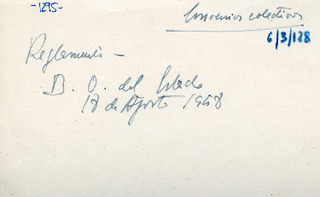 -1295-
Convenios colectivos
6/3/128
Reglamento -
B. O. del Estado
18 de Agosto 1958